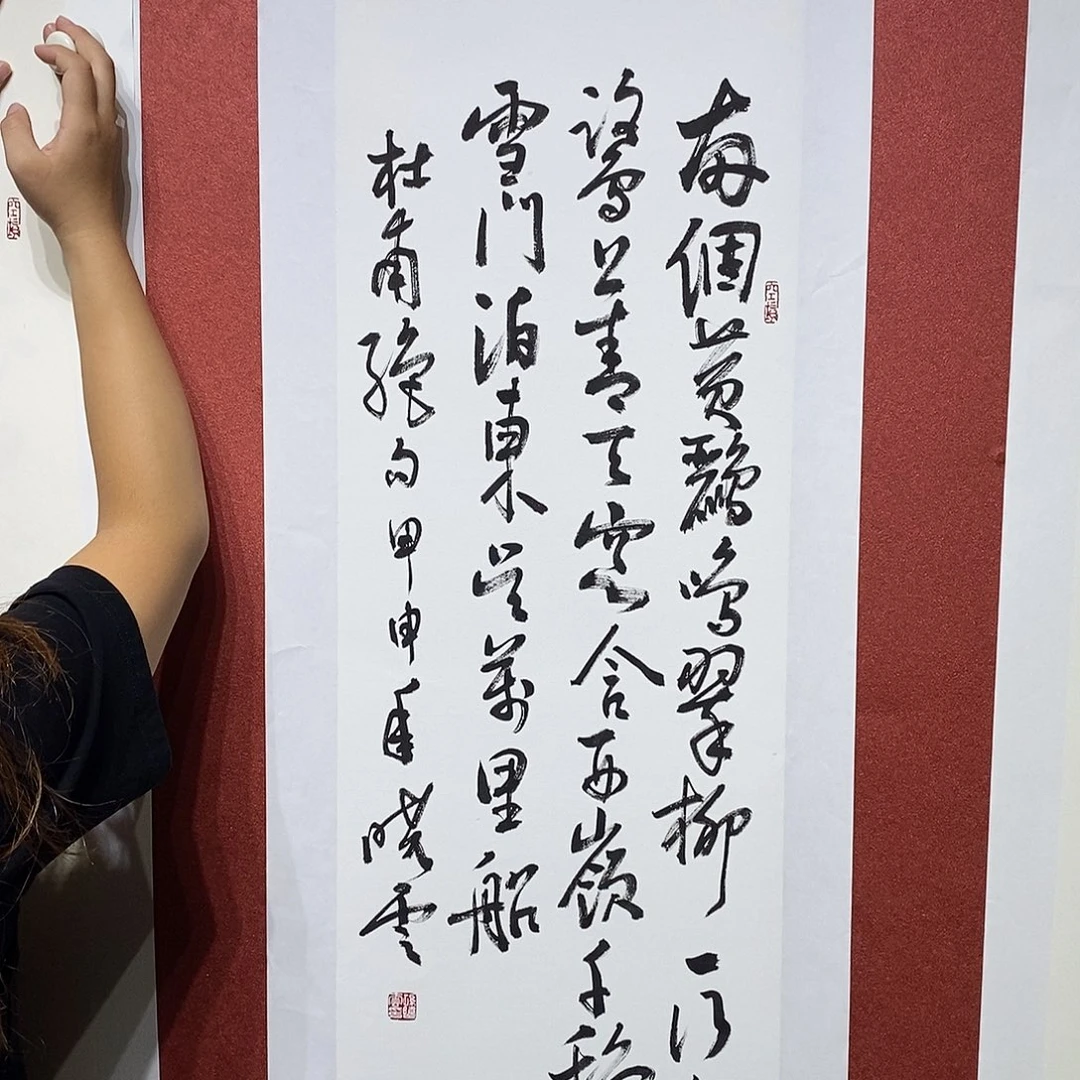 兩個黃鸝鳴翠柳一行
鷺上青天窗含西嶺千秋
雪門泊東吳萬里船
杜甫絕句甲申年曉雲